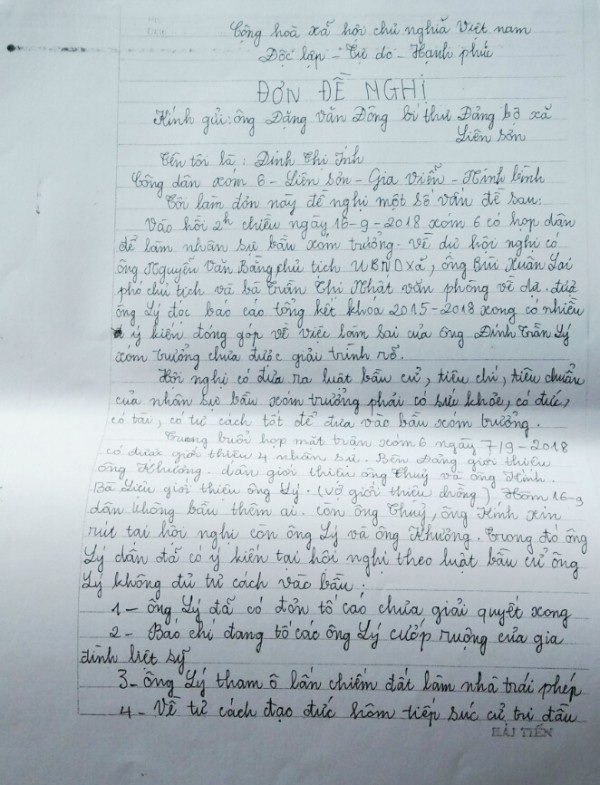 Cộng hoà xã hội chủ nghĩa Việt nam
Độc lập - Tự do - Hạnh phúc
ĐƠN ĐỀ NGHỊ
Kính gửi: ông Đặng Văn Đông bí thư Đảng bộ xã
Liên Sơn
Tên tôi là: Đinh Thị Tính
Công dân xóm 6 - Liên Sơn - Gia Viễn - Ninh bình
Tôi làm đơn này đề nghị một số vấn đề sau:
Vào hồi 2h chiều ngày 16-9-2018 xóm 6 có họp dân
để làm nhân sự bầu xóm trưởng. Về dự hội nghị có
ông Nguyễn Văn Bằng chủ tịch UBND xã, ông Bùi Xuân Lai
phó chủ tịch và bà Trần Thị Nhật văn phòng về dự.
ông Lý đọc báo cáo tổng kết khóa 2015-2018 xong có nhiều
ý kiến đóng góp về việc làm sai của ông Đinh Trần Lý
xóm trưởng chưa được giải trình rõ.
Hội nghị có đưa ra luật bầu cử, tiêu chí, tiêu chuẩn
của nhân sự bầu xóm trưởng phải có sức khỏe, có đức,
có tài, có tư cách tốt để đưa vào bầu xóm trưởng.
Trong buổi họp mặt trận xóm 6 ngày 7/9-2018
có được giới thiệu 4 nhân sự. Bên Đảng giới thiệu
ông Khường. dân giới thiệu ông Thuỷ và ông Kính.
Bà Liệu giới thiệu ông Lý. (vợ giới thiệu chồng). Hôm 16-9
dân không bầu thêm ai. Còn ông Thuỷ, ông Kính xin
rút tại hội nghị còn ông Lý và ông Khường. Trong đó ông
Lý dân đã có ý kiến tại hội nghị theo luật bầu cử ông
Lý không đủ tư cách vào bầu:
1- ông Lý đã có đơn tố cáo chưa giải quyết xong
2- Báo chí đang tố cáo ông Lý cướp ruộng của gia
đình liệt sỹ
3- ông Lý tham ô lấn chiếm đất làm nhà trái phép
4- Về tư cách đạo đức hôm tiếp xúc cử tri đầu
HẢI TIẾN